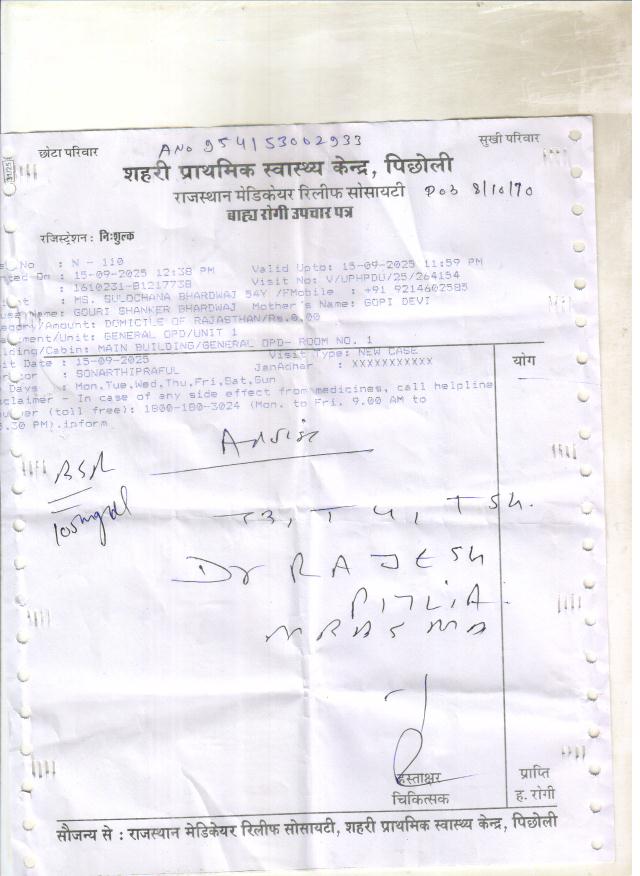 छोटा परिवार
सुखी परिवार
A No 954153002933
शहरी प्राथमिक स्वास्थ्य केन्द्र, पिछोली
राजस्थान मेडिकेयर रिलीफ सोसायटी DOB 8/10/70
बाह्य रोगी उपचार पत्र
रजिस्ट्रेशन : निःशुल्क
No : N - 110
On : 15-09-2025 12:38 PM Valid Upto: 15-09-2025 11:59 PM
: 1610231-81217738 Visit No: V/UPHPDU/25/264154
: MS. SULOCHANA BHARDWAJ 54Y /F Mobile : +91 9214602585
Name: GOURI SHANKER BHARDWAJ Mother's Name: GOPI DEVI
/Amount: DOMICILE OF RAJASTHAN/Rs.0.00
/Unit: GENERAL OPD/UNIT 1
/Cabin: MAIN BUILDING/GENERAL OPD- ROOM NO. 1
Date : 15-09-2025 Visit Type: NEW CASE
: SONARTHIPRAFUL JanAdhar : XXXXXXXXXXX
Days : Mon,Tue,Wed,Thu,Fri,Sat,Sun
- In case of any side effect from medicines, call helpline
(toll free): 1800-180-3024 (Mon. to Fri. 9.00 AM to
.30 PM).inform
योग
Advise
BSR
105mg/dl
T3, T4, TSH.
Dr RAJESH
PITLIA
MBBS MD
हस्ताक्षर
चिकित्सक
प्राप्ति
ह. रोगी
सौजन्य से : राजस्थान मेडिकेयर रिलीफ सोसायटी, शहरी प्राथमिक स्वास्थ्य केन्द्र, पिछोली